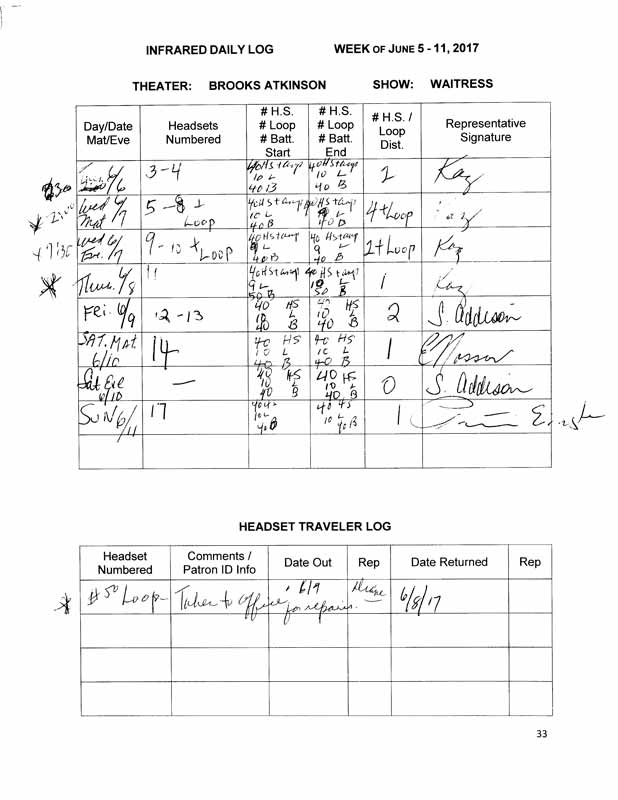 INFRARED DAILY LOG WEEK OF JUNE 5 - 11, 2017
THEATER: BROOKS ATKINSON SHOW: WAITRESS
Day/Date Mat/Eve Headsets Numbered # H.S. # Loop # Batt. Start # H.S. # Loop # Batt. End # H.S. / Loop Dist. Representative Signature
6/6 3-4 10 L 40 B 10 L 40 B 2 Kay
Wed Mat 6/7 5-8 + Loop 10 L 40 B 40 B 4+Loop
7:30 Wed 6/7 9-10 + Loop 40 B 40 HS 9 L 40 B 2+Loop Kay
Thur. 6/8 11 9 L 50 B 40 HS L 50 B 1 Kay
Fri 6/9 12-13 40 HS 10 L 40 B 40 HS 10 L 40 B 2 S. Addison
SAT. MAT 6/10 14 40 HS 10 L 40 B 40 HS 10 L 40 B 1
Sat Eve 6/10 — 40 HS 10 L 40 B 40 HS 10 L 40 B 0 S. Addison
SUN 6/11 17 10 L 40 B 10 L 40 B 1
HEADSET TRAVELER LOG
Headset Numbered Comments / Patron ID Info Date Out Rep Date Returned Rep
#50 Loop Taken to office for repairs. 6/9 Diane 6/8/17
33